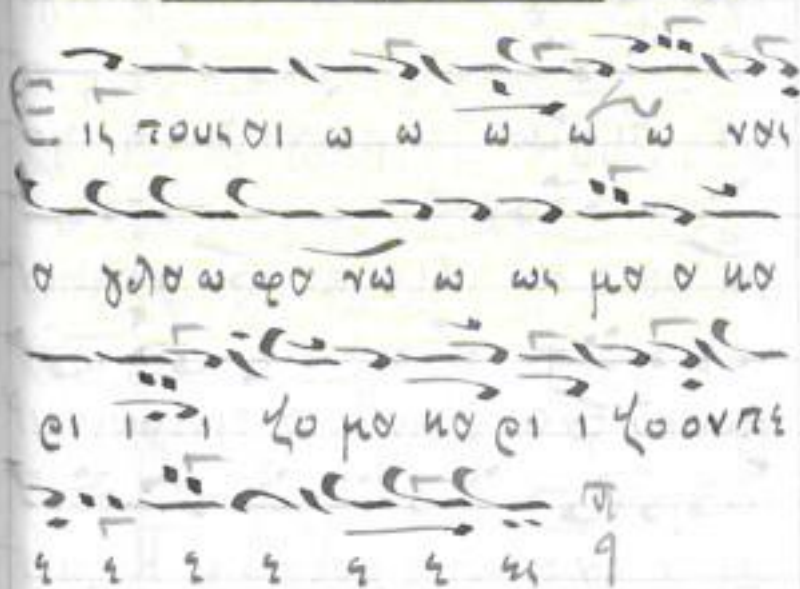 Εις τουςαι ω ω ω ω ω νας
α γλα ω φα νω ω ως μα α κα
ρι ι ι ζο μα κα ρι ι ζοονπε
ε ε ε ε ε ε ες